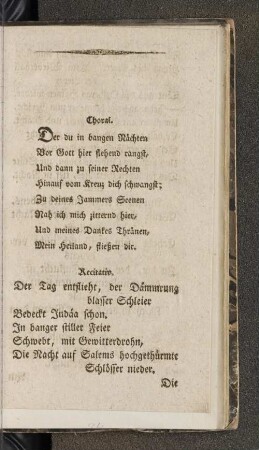 Choral.
Der du in bangen Nächten
Vor Gott hier flehend rangst,
Und dann zu seiner Rechten
Hinauf vom Kreuz dich schwangst;
Zu deines Jammers Scenen
Nah ich mich zitternd hier,
Und meines Dankes Thränen,
Mein Heiland, fließen dir.
Recitativ.
Der Tag entflieht, der Dämmrung
blasser Schleier
Bedeckt Judäa schon.
In banger stiller Feier
Schwebt, mit Gewitterdrohn,
Die Nacht auf Salems hochgethürmte
Schlösser nieder.
Die